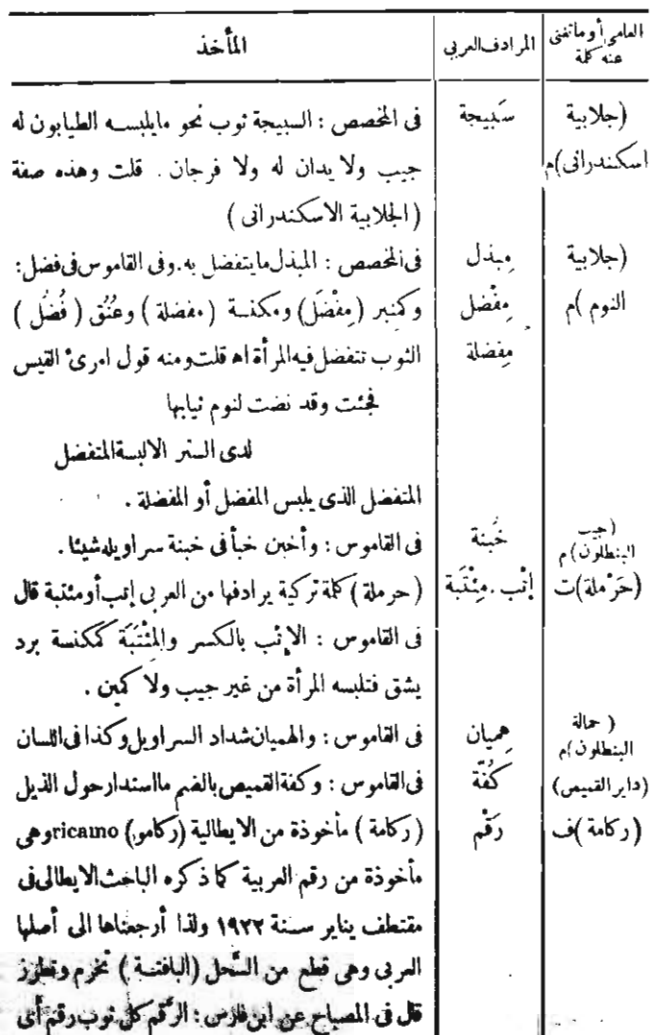 العامى أو ماتغنى عنه كلمة | المرادف العربى | المأخذ
(جلابية | سَبيجة | فى المخصص : السبيجة ثوب نحو مايلبسه الطيابون له
اسكندرانى)م | جيب ولا يدان له ولا فرجان . قلت وهذه صفة
( الجلابية الاسكندرانى )
(جلابية | مِبذل | فى المخصص : المبذل مايتفضل به . وفى القاموس فى فضل:
النوم )م | مِفْضل | وكمنبر (مِفْضَل) ومكنسة (مفضلة ) وعُنُق ( فُضُل )
مِفضلة | الثوب تتفضل فيه المرأة اه قلت ومنه قول امرئ القيس
فجئت وقد نضت لنوم ثيابها
لدى الستر الا لبسة المتفضل
المتفضل الذى يلبس المفضل أو المفضلة .
(جيب البنطلون)م | خُبنة | فى القاموس : وأخبن خبأ فى خبنة سراويله شيئا .
(حَرْملة)ت | إتْب . مِئْتَبة | (حرملة ) كلمة تركية يرادفها من العربى إتب أو مئتبة قال
فى القاموس : الإتب بالكسر والمِئْتَبَة كمكنسة برد
يشق فتلبسه المرأة من غير جيب ولا كمين .
( حمالة البنطلون)م | هِميان | فى القاموس : والهميان شداد السراويل وكذا فى اللسان
(داير القميص) | كُفّة | فى القاموس : وكفة القميص بالضم مااستدار حول الذيل
(ركامة )ف | رَقْم | ( ركامة ) مأخوذة من الايطالية (ركامو) ricamo وهى
مأخوذة من رقم العربية كما ذكره الباحث الايطالى فى
مقتطف يناير سنة ١٩٢٢ ولذا أرجعناها الى أصلها
العربى وهى قطع من السَّحل (البافتة ) تخرم وتطرز
قال فى المصباح عن ابن فارس : الرَّقم كل ثوب رقم أى